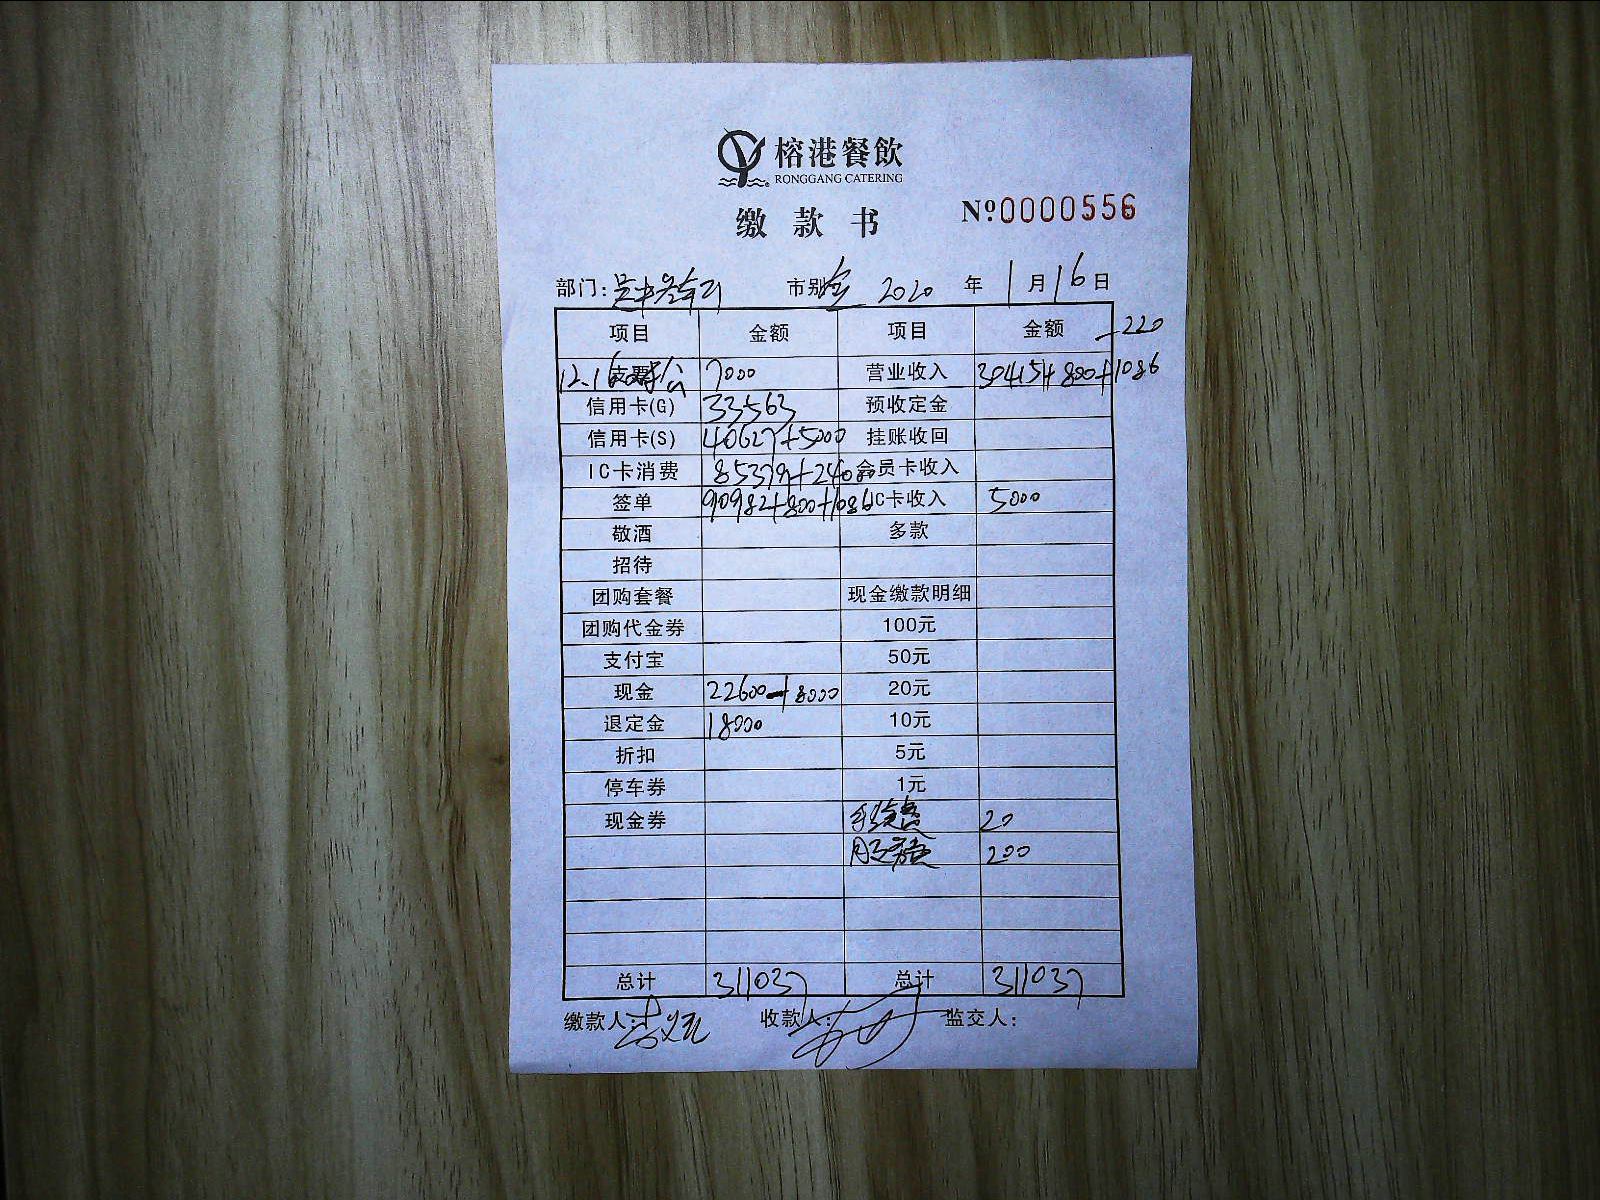 榕港餐飲
RONGGANG CATERING
缴款书
Nº0000556
部门: 市别 全 2020 年 1 月 16 日
项目 金额 项目 金额 -220
12.16 7000 营业收入 304151+800+1086
信用卡(G) 33563 预收定金
信用卡(S) 40627+5000 挂账收回
IC卡消费 85379+2400 会员卡收入
签单 90982+800+1086 IC卡收入 5000
敬酒 多款
招待
团购套餐 现金缴款明细
团购代金券 100元
支付宝 50元
现金 22600+8000 20元
退定金 18000 10元
折扣 5元
停车券 1元
现金券 手续费 20
服务费 200
总计 311037 总计 311037
缴款人: 收款人: 监交人: